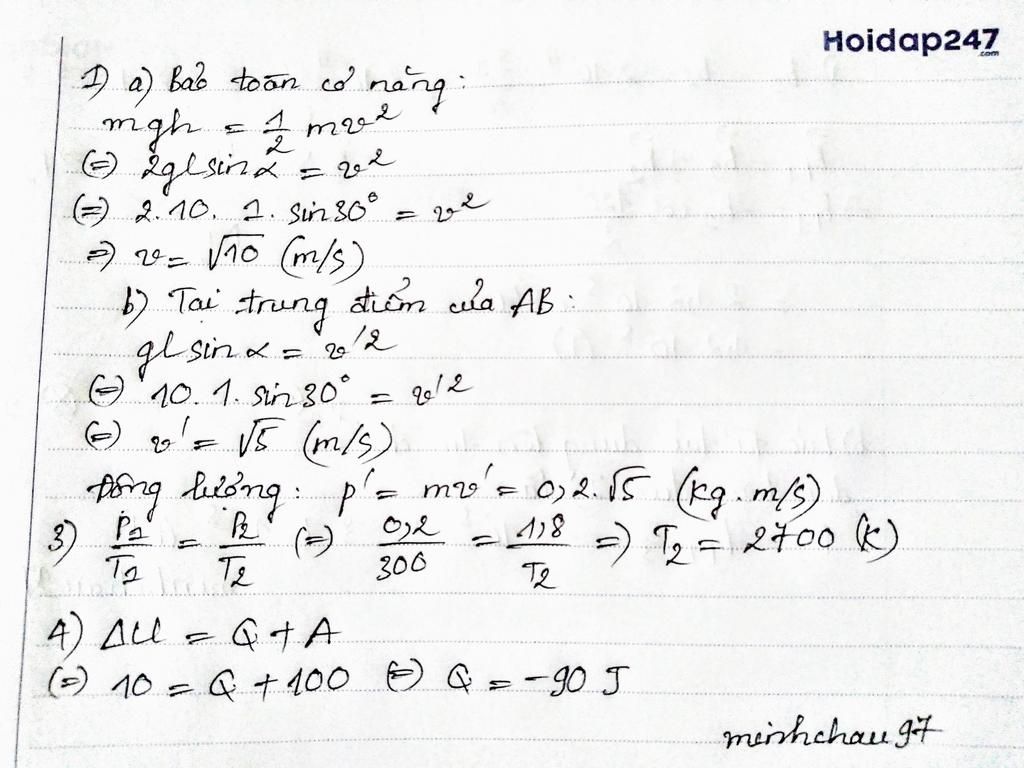 Hoidap247
.com
1) a) Bảo toàn cơ năng:
mgh = 1/2 mv²
(=) 2glsinα = v²
(=) 2.10. 1. sin30° = v²
=) v = √10 (m/s)
b) Tại trung điểm của AB:
glsinα = v'²
(=) 10. 1. sin30° = v'²
(=) v' = √5 (m/s)
Động lượng: p' = mv' = 0,2.√5 (kg.m/s)
3) P₁/T₁ = P₂/T₂ (=) 0,2/300 = 1,8/T₂ =) T₂ = 2700 (K)
4) ΔU = Q + A
(=) 10 = Q + 100 (=) Q = -90 J
minhchau97